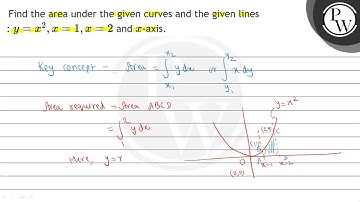 Find the area under the given curves and the given lines
: y = x², x = 1, x = 2 and x-axis.
Key concept – Area = ∫_{x₁}^{x₂} y dx or ∫_{y₁}^{y₂} x dy
Area required = Area ABCD
= ∫_{1}^{2} y dx
Here, y = x
y = x²
C
B
A
D
O
(0,0)
x=1
x=2